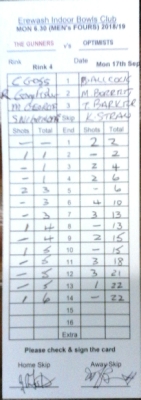 Erewash Indoor Bowls Club
MON 6.30 (MEN'S FOURS) 2018/19
THE GUNNERS v's OPTIMISTS
Rink Rink 4 Date Mon 17th Sep
1
2
3 T. BARKER
Skip K STRAW
Shots Total End Shots Total
- - 1 2 2
1 1 2 - 2
- 1 3 2 4
- 1 4 2 6
2 3 5 - 6
- 3 6 4 10
- 3 7 3 13
1 4 8 - 13
- 4 9 2 15
1 5 10 - 15
- 5 11 3 18
- 5 12 3 21
- 5 13 1 22
1 6 14 - 22
15
16
Extra
Please check & sign the card
Home Skip Away Skip